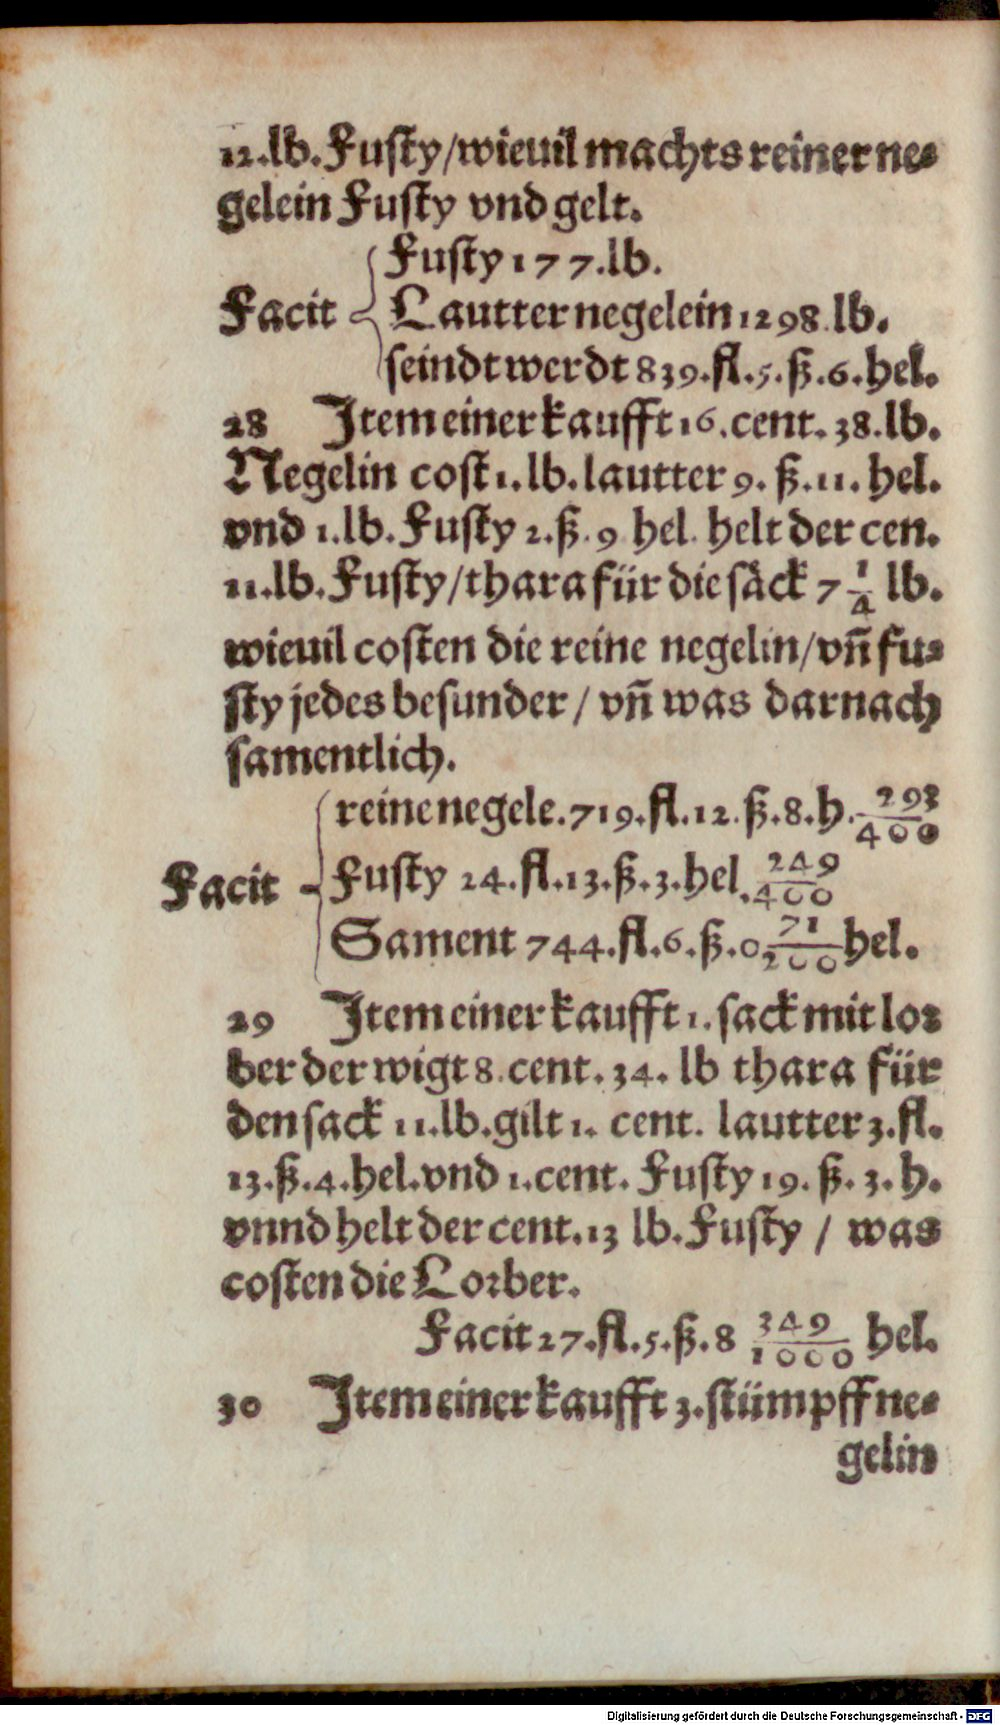 12.lb. Fusty/wieuil machts reiner ne⸗
gelein Fusty vnd gelt.
Fusty 177.lb.
Facit Lautter negelein 1298.lb.
seindt werdt 839.fl.5.ß.6.hel.
28 Item einer kaufft 16.cent.38.lb.
Negelin cost 1.lb.lautter 9.ß.11.hel.
vnd 1.lb.Fusty 2.ß.9 hel. helt der cen.
11.lb.Fusty/thara für die säck 7 1/4 lb.
wieuil costen die reine negelin/vñ fu⸗
sty jedes besunder/vñ was darnach
samentlich.
reine negele.719.fl.12.ß.8.h. 293/400
Facit Fusty 24.fl.13.ß.3.hel. 249/400
Sament 744.fl.6.ß.0 71/200 hel.
29 Item einer kaufft 1.sack mit lor
ber der wigt 8.cent.34.lb thara für
den sack 11.lb.gilt 1.cent.lautter 3.fl.
13.ß.4.hel.vnd 1.cent.Fusty 19.ß.3.h.
vnnd helt der cent.13 lb.Fusty / was
costen die Lorber.
Facit 27.fl.5.ß.8 349/1000 hel.
30 Item einer kaufft 3.stümpff ne⸗
gelin
Digitalisierung gefördert durch die Deutsche Forschungsgemeinschaft - DFG